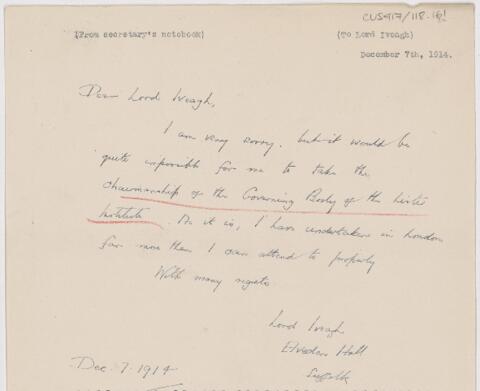 CUS417/118.16!
(From secretary's notebook) (To Lord Iveagh)
December 7th, 1914.
Dear Lord Iveagh,
I am very sorry, but it would be
quite impossible for me to take the
chairmanship of the Governing Body of the Lister
Institute. As it is, I have undertaken in London
far more than I can attend to properly
With many regrets
Lord Iveagh
Elveden Hall
Suffolk
Dec. 7. 1914